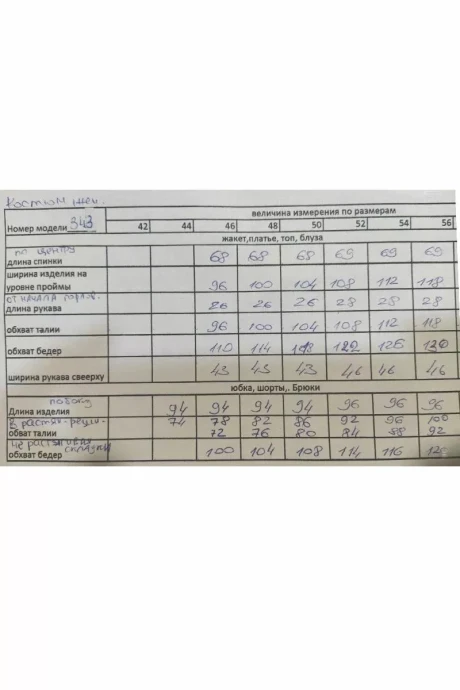 Костюм жен.
величина измерения по размерам
Номер модели 343 42 44 46 48 50 52 54 56
жакет,платье, топ, блуза
по центру
длина спинки 68 68 68 69 69 69
ширина изделия на
уровне проймы 96 100 104 108 112 118
от начала горлов.
длина рукава 26 26 26 28 28 28
обхват талии 96 100 104 108 112 118
обхват бедер 110 114 118 122 126 130
ширина рукава свеерху 43 43 43 46 46 46
юбка, шорты,. Брюки
по боку
Длина изделия 94 94 94 94 96 96 96
в растян- 74 78 82 86 92 96 100
обват талии 72 76 80 84 88 92
не растягивая складки
обхват бедер 100 104 108 114 116